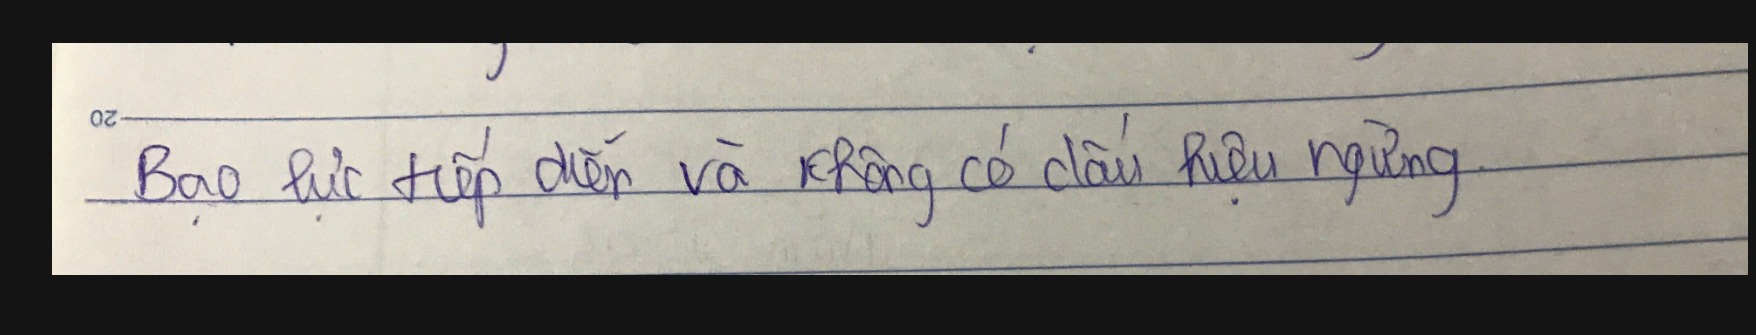 20
Bạo lực tiếp diễn và không có dấu hiệu ngừng